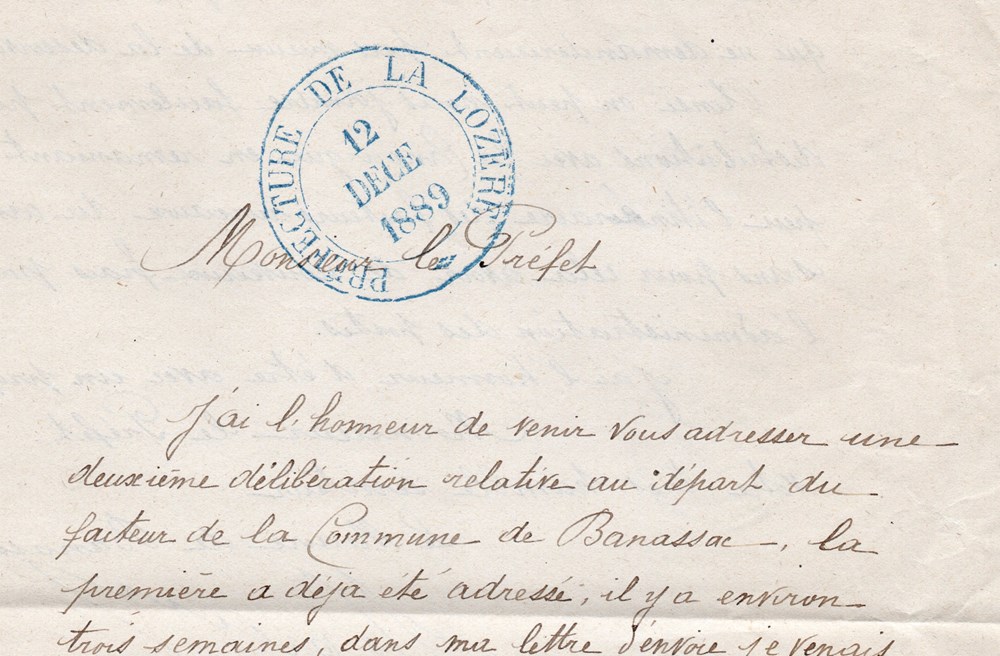 PRÉFECTURE DE LA LOZÈRE
12
DECE
1889
Monsieur le Préfet
J'ai l'honneur de venir vous adresser une
deuxième délibération relative au départ du
facteur de la Commune de Banassac, la
première a déja été adressé, il y a environ
trois semaines, dans ma lettre d'envoie je venais